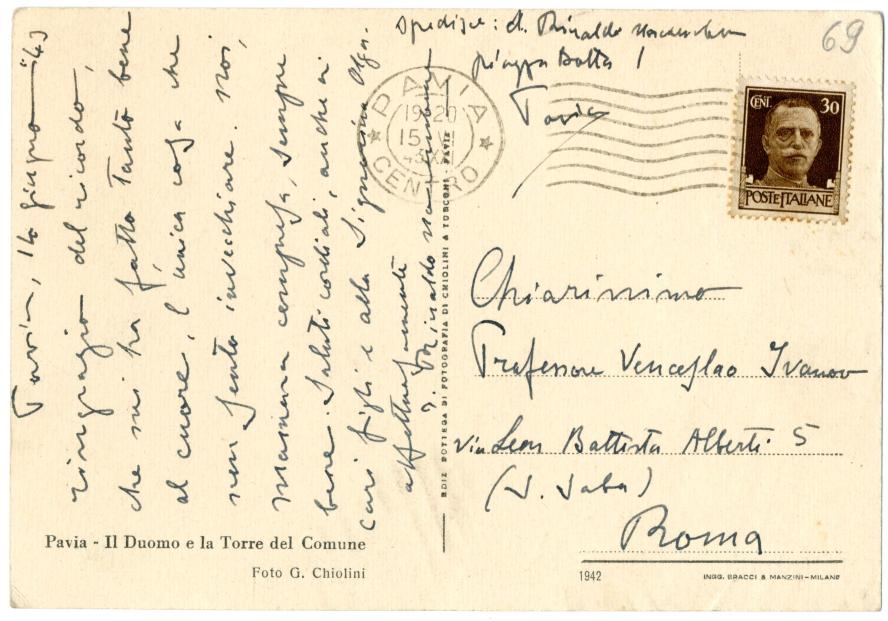 Pavia, 14 giugno '43
ringrazio del ricordo,
che mi ha fatto tanto bene
al cuore, l'unica cosa che
non sento invecchiare. Noi,
massera compresa, sempre
bene. Saluti cordiali, anche ai
cari figli e alla Signorina Olga.
affettuosamente
Rinaldo
Spedisce: d. Rinaldo
piazza Botta 1
Pavia
69
PAVIA CENTRO
19-20
15 VI
43 XXI
CENT. 30
POSTE ITALIANE
Chiarissimo
Professore Venceslao Ivanov
via Leon Battista Alberti 5
(S. Saba)
Roma
EDIZ. BOTTEGA DI FOTOGRAFIA DI CHIOLINI & TURCONI - PAVIA
Pavia - Il Duomo e la Torre del Comune
Foto G. Chiolini
1942
INGG. BRACCI & MANZINI - MILANO